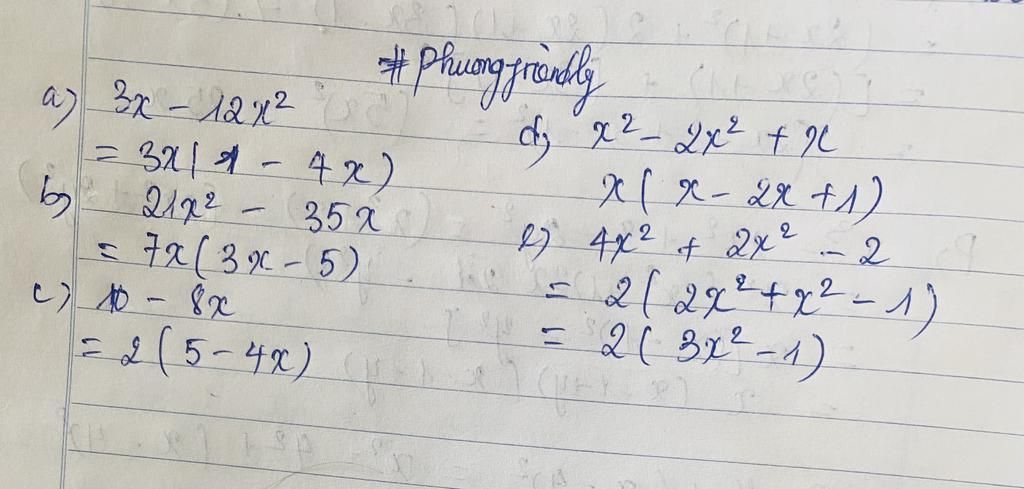 #Phuongfriendly
a) 3x - 12x²
= 3x(1 - 4x)
b) 21x² - 35x
= 7x(3x - 5)
c) 10 - 8x
= 2(5 - 4x)
d) x² - 2x² + x
x(x - 2x + 1)
e) 4x² + 2x² - 2
= 2(2x² + x² - 1)
= 2(3x² - 1)